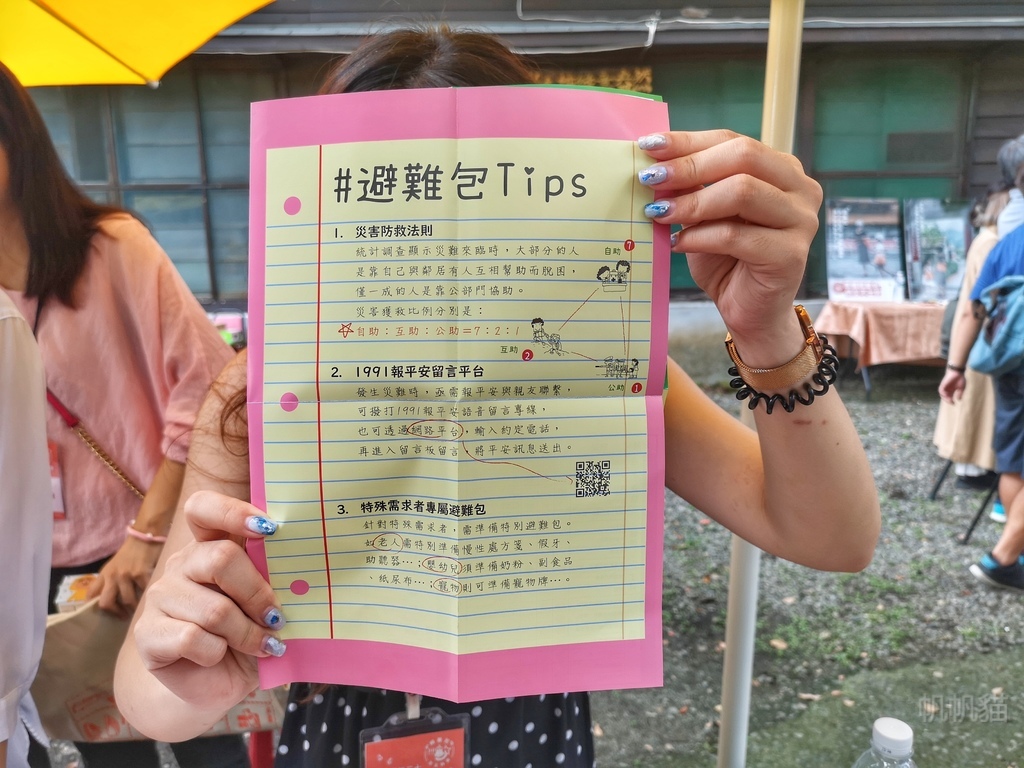 #避難包Tips
1. 災害防救法則
統計調查顯示災難來臨時，大部分的人
是靠自己與鄰居有人互相幫助而脫困，
僅一成的人是靠公部門協助。
災害獲救比例分別是：
自助：互助：公助=7：2：1
自助 7
互助 2
公助 1
2. 1991報平安留言平台
發生災難時，亟需報平安與親友聯繫，
可撥打1991報平安語音留言專線，
也可透過網路平台，輸入約定電話，
再進入留言板留言，將平安訊息送出。
3. 特殊需求者專屬避難包
針對特殊需求者，需準備特別避難包。
如老人需特別準備慢性處方箋、假牙、
助聽器…；嬰幼兒須準備奶粉、副食品
、紙尿布…；寵物則可準備寵物牌…。
帆帆貓